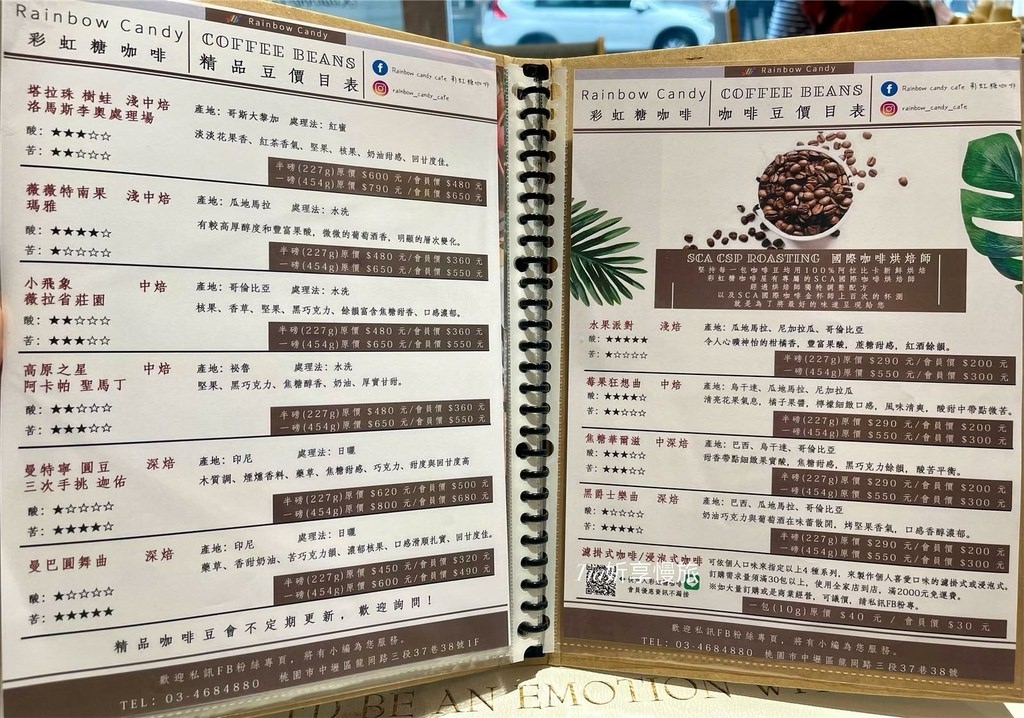 Rainbow Candy
彩虹糖咖啡
Rainbow Candy
COFFEE BEANS
精品豆價目表
Rainbow candy cafe 彩虹糖咖啡
rainbow_candy_cafe
塔拉珠 樹蛙 淺中焙
洛馬斯李奧處理場
產地：哥斯大黎加 處理法：紅蜜
淡淡花果香、紅茶香氣、堅果、核果、奶油甜感、回甘度佳。
酸：★★★☆☆
苦：★★☆☆☆
半磅(227g)原價 $600 元/會員價 $480 元
一磅(454g)原價 $790 元/會員價 $650 元
薇薇特南果 淺中焙
瑪雅
產地：瓜地馬拉 處理法：水洗
有較高厚醇度和豐富果酸，微微的葡萄酒香，明顯的層次變化。
酸：★★★★☆
苦：★☆☆☆☆
半磅(227g)原價 $480 元/會員價 $360 元
一磅(454g)原價 $650 元/會員價 $550 元
小飛象 中焙
薇拉省莊園
產地：哥倫比亞 處理法：水洗
核果、香草、堅果、黑巧克力、餘韻富含焦糖甜香、口感濃郁。
酸：★★☆☆☆
苦：★★★☆☆
半磅(227g)原價 $480 元/會員價 $360 元
一磅(454g)原價 $650 元/會員價 $550 元
高原之星 中焙
阿卡帕 聖馬丁
產地：祕魯 處理法：水洗
堅果、黑巧克力、焦糖醇香、奶油、厚實甘甜。
酸：★★☆☆☆
苦：★★★☆☆
半磅(227g)原價 $480 元/會員價 $360 元
一磅(454g)原價 $650 元/會員價 $550 元
曼特寧 圓豆 深焙
三次手挑 迦佑
產地：印尼 處理法：日曬
木質調、煙燻香料、藥草、焦糖甜感、巧克力、甜度與回甘度高
酸：★☆☆☆☆
苦：★★★★☆
半磅(227g)原價 $620 元/會員價 $500 元
一磅(454g)原價 $800 元/會員價 $680 元
曼巴圓舞曲 深焙
產地：印尼 處理法：日曬
藥草、香甜奶油、苦巧克力韻、濃郁核果、口感滑順扎實、回甘度佳。
酸：★☆☆☆☆
苦：★★★★★
半磅(227g)原價 $450 元/會員價 $320 元
一磅(454g)原價 $600 元/會員價 $490 元
精品咖啡豆會不定期更新，歡迎詢問！
歡迎私訊FB粉絲專頁，將有小編為您服務。
TEL：03-4684880 桃園市中壢區龍岡路三段37巷38號1F
Rainbow Candy
彩虹糖咖啡
Rainbow Candy
COFFEE BEANS
咖啡豆價目表
Rainbow candy cafe 彩虹糖咖啡
rainbow_candy_cafe
SCA CSP ROASTING 國際咖啡烘焙師
堅持每一包咖啡豆均用100%阿拉比卡新鮮烘焙
彩虹糖咖啡屋有專屬的SCA國際咖啡烘焙師
經過烘焙師獨特調整配方
以及SCA國際咖啡金杯師上百次的杯測
就是為了將最好的味道呈現給您
水果派對 淺焙
產地：瓜地馬拉、尼加拉瓜、哥倫比亞
令人心曠神怡的柑橘香，豐富果酸，蔗糖甜感，紅酒餘韻。
酸：★★★★★
苦：★☆☆☆☆
半磅(227g)原價 $290 元/會員價 $200 元
一磅(454g)原價 $550 元/會員價 $300 元
莓果狂想曲 中焙
產地：烏干達、瓜地馬拉、尼加拉瓜
清亮花果氣息，橘子果醬，檸檬細緻口感，風味清爽，酸甜中帶點微苦。
酸：★★★★☆
苦：★★☆☆☆
半磅(227g)原價 $290 元/會員價 $200 元
一磅(454g)原價 $550 元/會員價 $300 元
焦糖華爾滋 中深焙
產地：巴西、烏干達、哥倫比亞
甜香帶點細緻果實酸，焦糖甜感，黑巧克力餘韻，酸苦平衡。
酸：★★★☆☆
苦：★★★☆☆
半磅(227g)原價 $290 元/會員價 $200 元
一磅(454g)原價 $550 元/會員價 $300 元
黑爵士樂曲 深焙
產地：巴西、瓜地馬拉、哥倫比亞
奶油巧克力與葡萄酒在味蕾散開，烤堅果香氣，口感香醇濃郁。
酸：★☆☆☆☆
苦：★★★★☆
半磅(227g)原價 $290 元/會員價 $200 元
一磅(454g)原價 $550 元/會員價 $300 元
濾掛式咖啡/浸泡式咖啡
可依個人口味來指定以上4種系列，來製作個人喜愛口味的濾掛式或浸泡式。
訂購需求量須滿30包以上，使用全家店到店，滿2000元免運費。
※如大量訂購或是商業經營，可議價，請私訊FB粉專。
會員優惠資訊不漏接
一包(10g)原價 $40 元 / 會員價 $30 元
歡迎私訊FB粉絲專頁，將有小編為您服務。
TEL：03-4684880 桃園市中壢區龍岡路三段37巷38號
Tia妡享慢旅
BE AN EMOTION